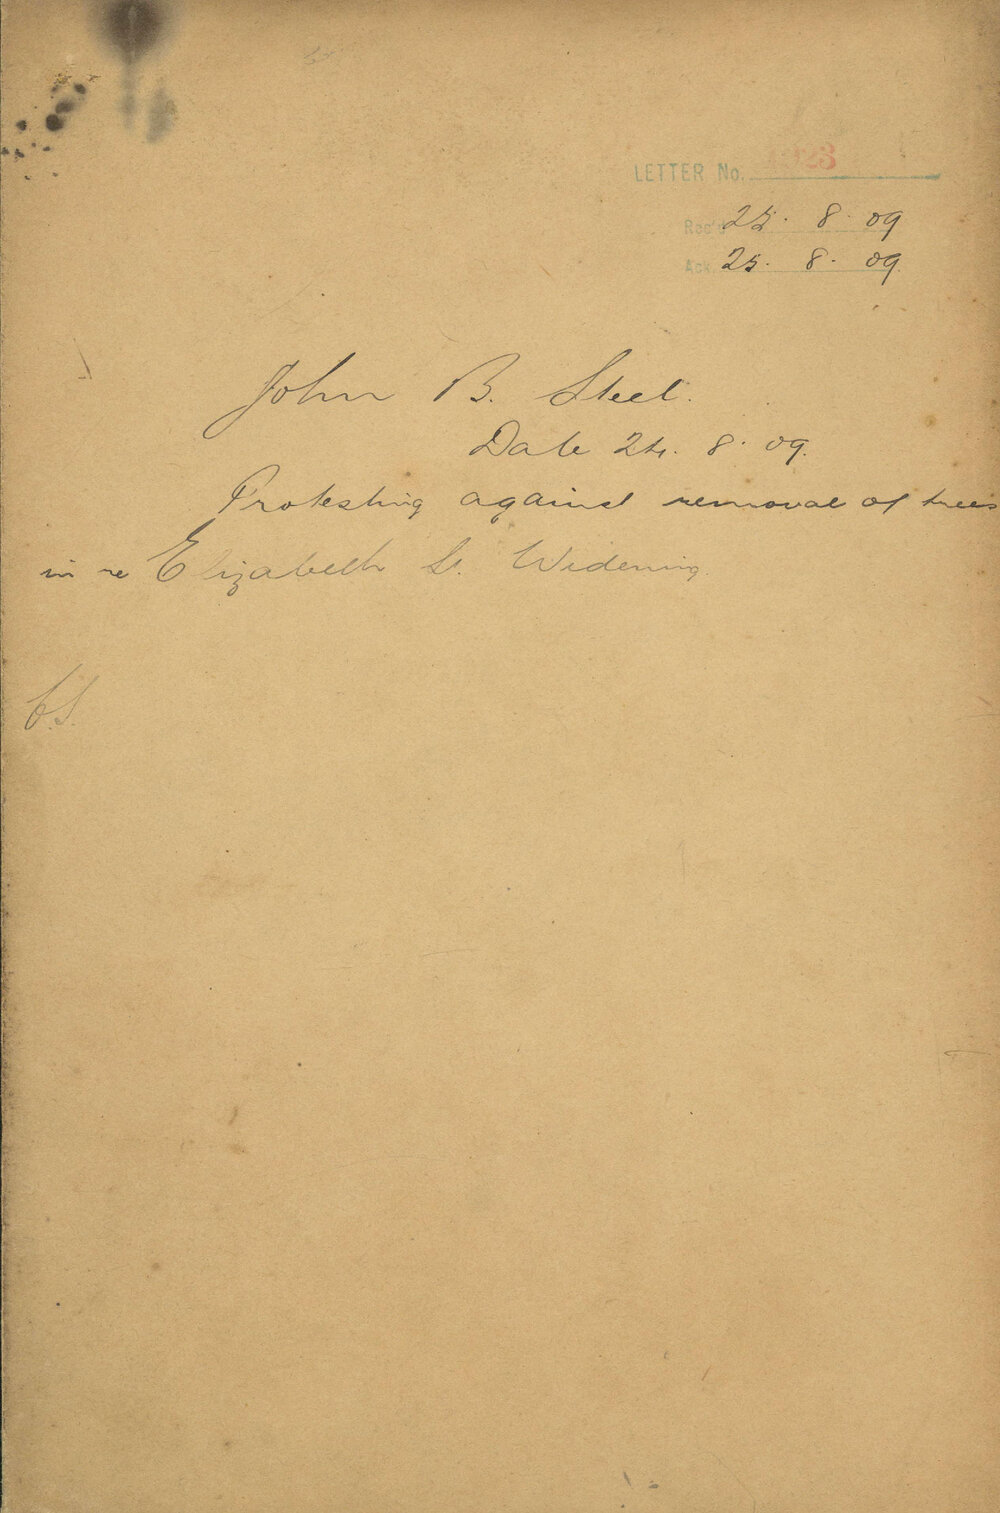 LETTER No. 1923
Rec'd 25. 8. 09
Ack. 25. 8. 09
John B. Steel.
Date 24. 8. 09.
Protesting against removal of trees
in re Elizabeth St. Widening.